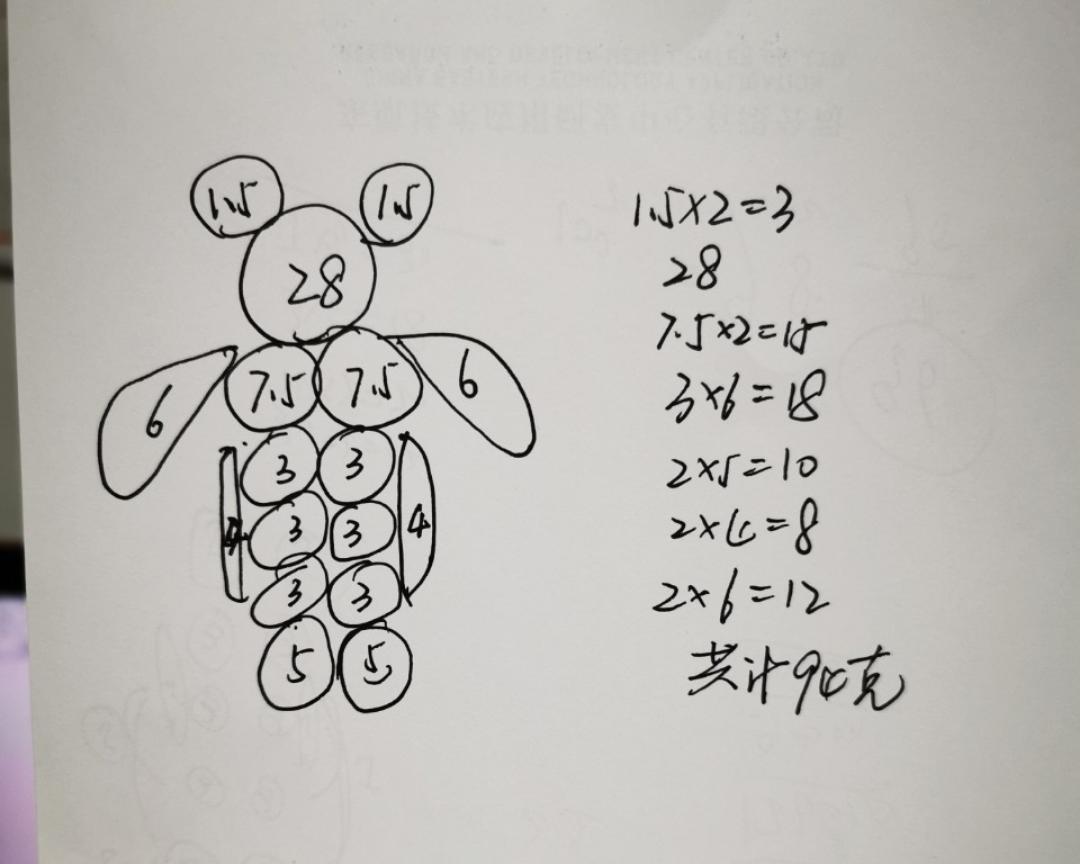 1.5 1.5
28
6 7.5 7.5 6
3 3
4 3 3 4
3 3
5 5
1.5×2=3
28
7.5×2=15
3×6=18
2×5=10
2×4=8
2×6=12
共计94克